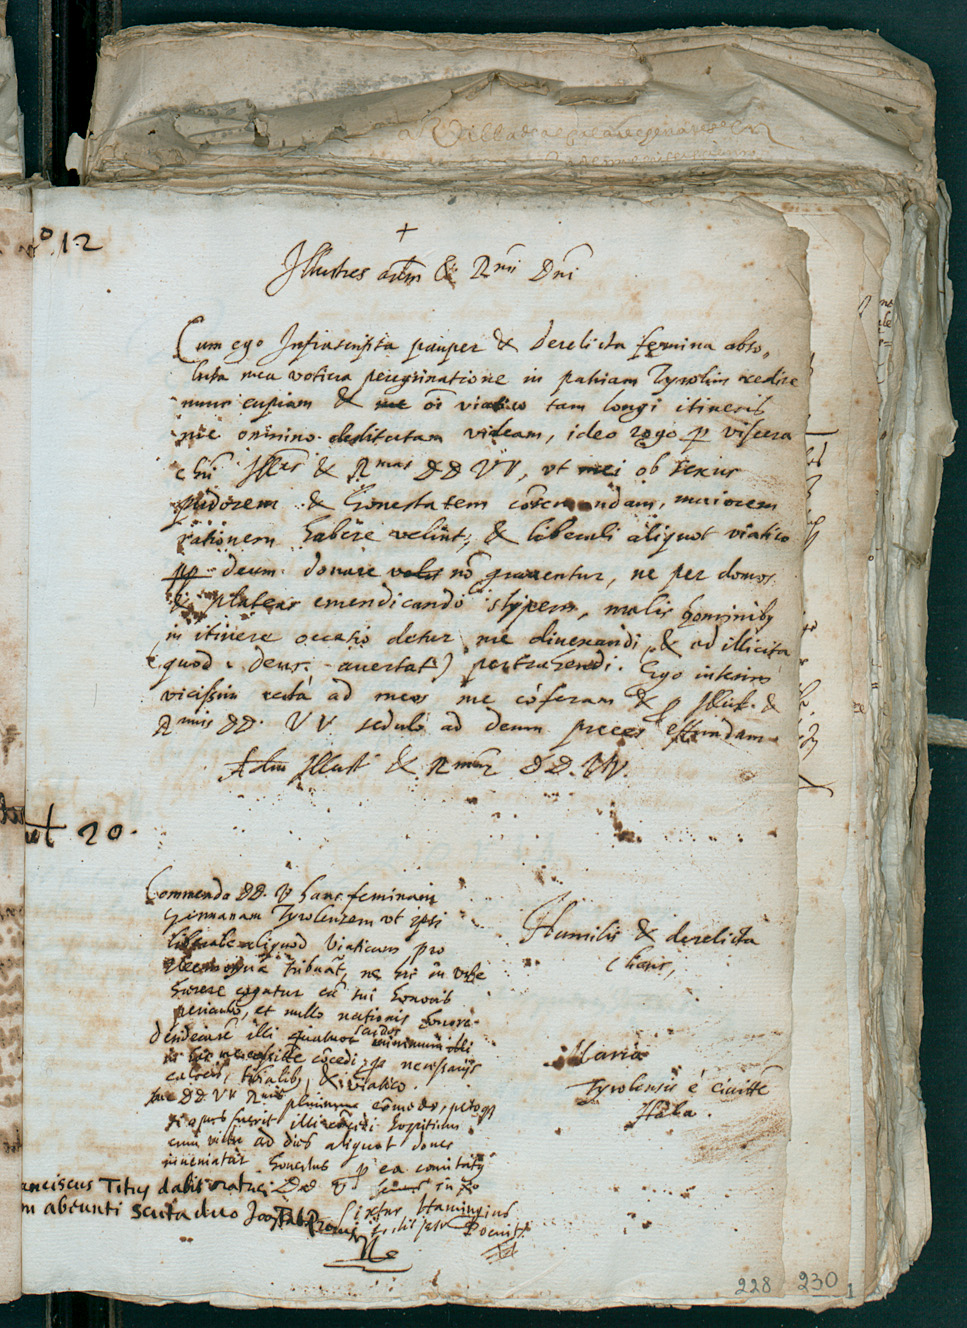 no 12
+
Illustres adm & Rmi Dni
Cum ego Infrascripta pauper & derelicta femina abso-
luta mea votiva peregrinatione in patriam Tyrolim redire
nunc cupiam & oi viatico tam longi itineris
me omnino destitutam videam, ideo rogo p viscera
chri Illres & Rmas DD VV, vt mei ob sexus
pudorem & honestatem conservandam, maiorem
rationem habere velint, & liberali aliquot viatico
pp deum donare no graventur, ne per domos
& plateas emendicando stipem, malis hominibq
in itinere occasio detur me divexandi, & ad illicita
(quod deus avertat) pertrahendi. Ego interim
vicissim recta ad meos me coferam & p Illust. &
Rmis DD. VV sedulo ad deum preces effundam
Adm Illust & Rmar DD. VV.
20.
Commendo DD. V hanc feminam
germanam Tyrolensem vt ipsi
liberale aliquod viaticum, pro
tribuat, ne hic in vrbe
herere cogatur cu sui honoris
periculo, et nullo nationis honore.
illi quatuor scudos
cocedi p necessarijs
calceis, tibialibq & viatico.
DD VV Rmis plurimum comedo, petoq
si opus fuerit illi hospitium
cum victu ad dies aliquot donec
inveniatur honestus p ea comitatq
Humilis & derelicta
cliens,
Maria
Tyrolensis é civitte
Hala.
Franciscus Titus dabit oratrici
abeunti scuta duo
228 230 1